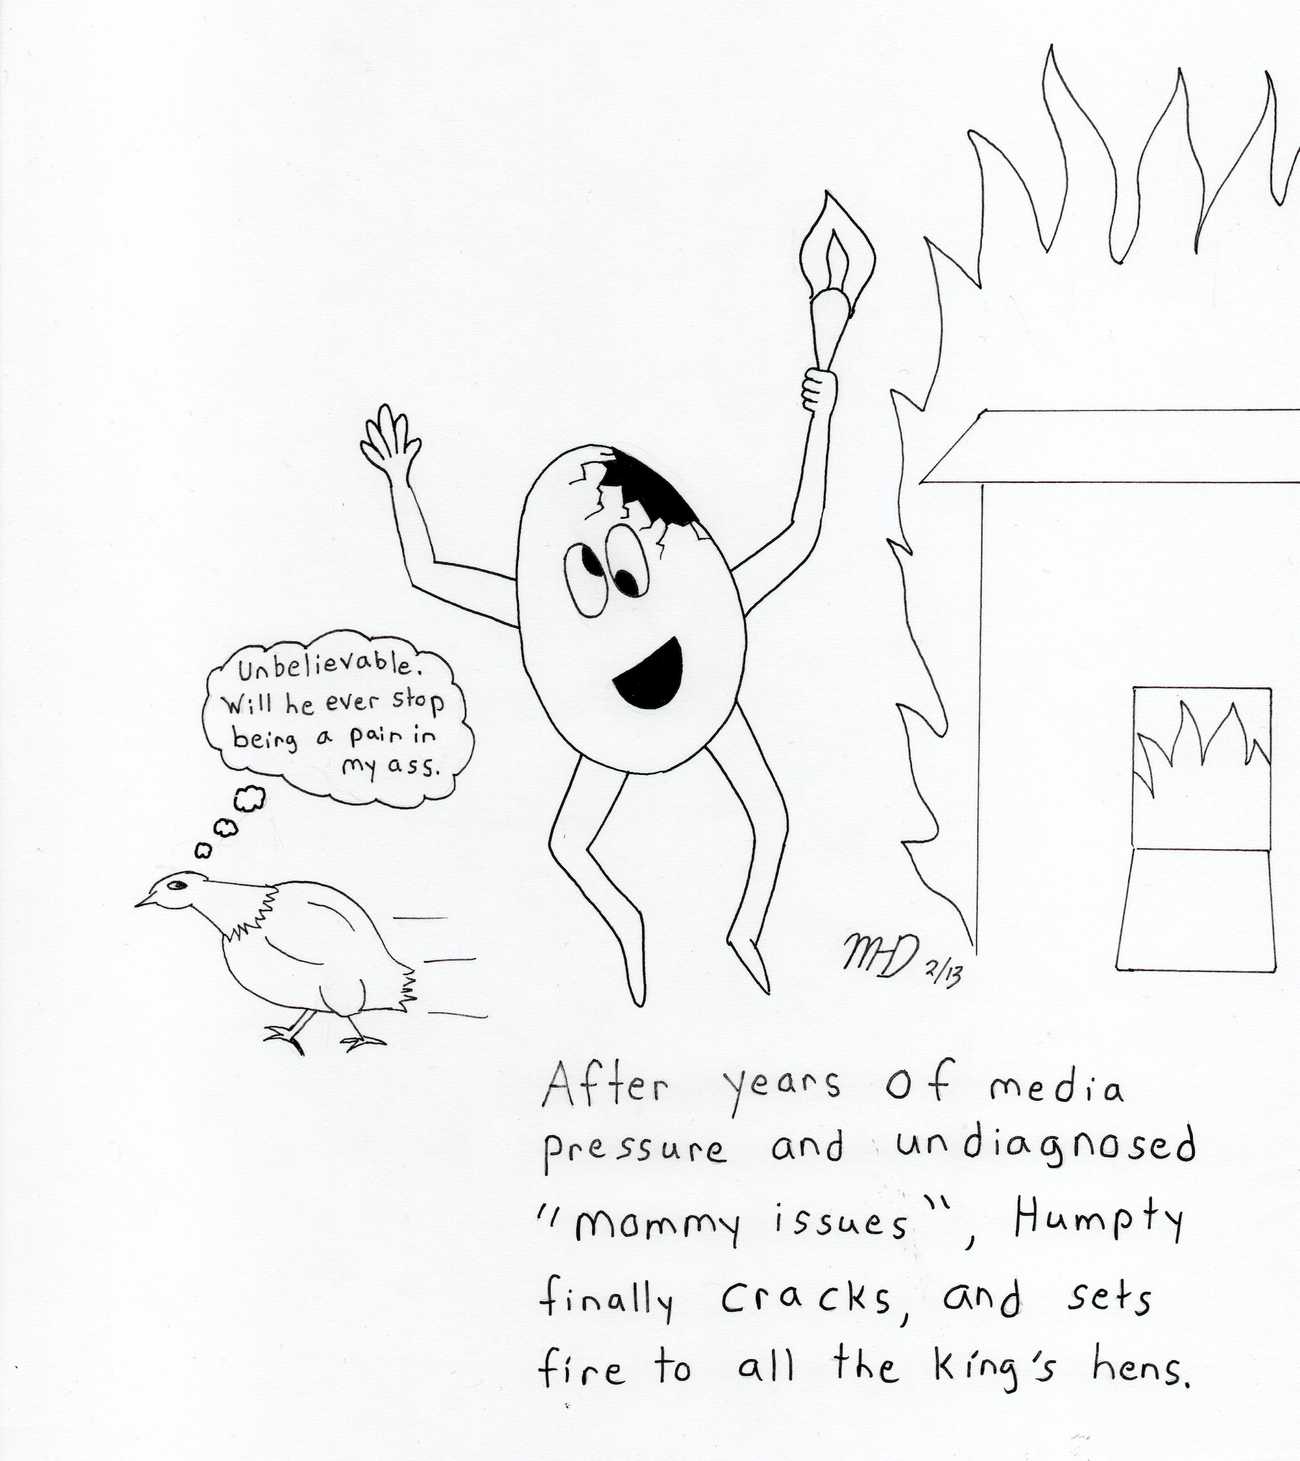 Unbelievable.
Will he ever stop
being a pain in
my ass.
MHD 2/13
After years of media
pressure and undiagnosed
"mommy issues", Humpty
finally cracks, and sets
fire to all the king's hens.